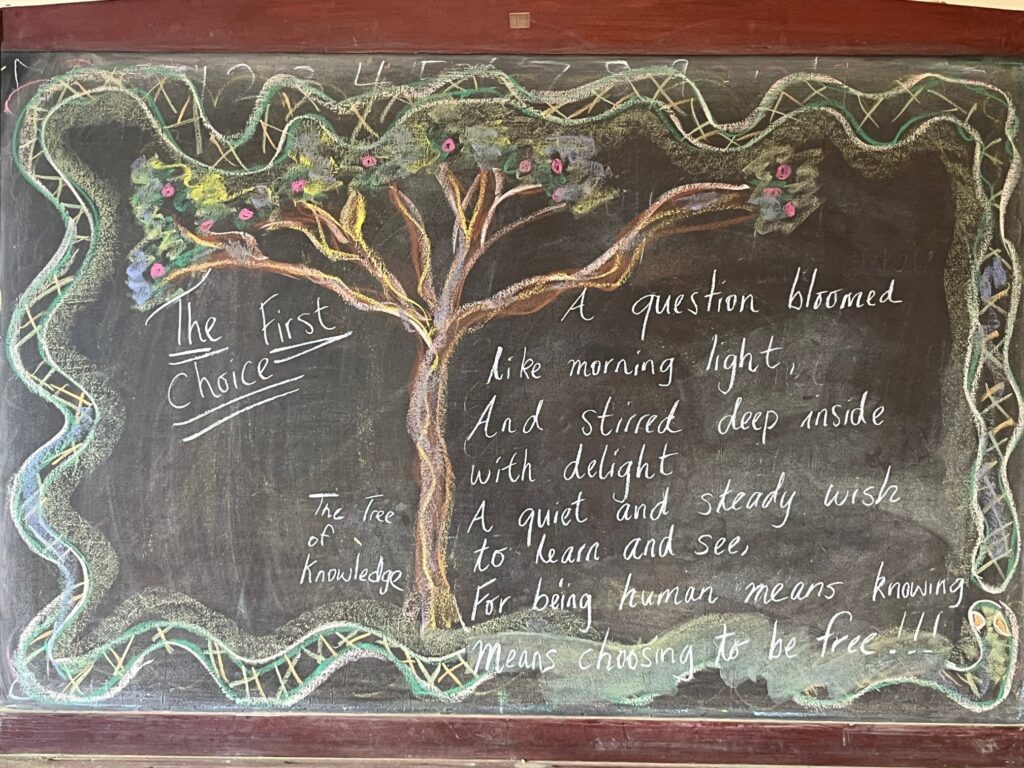 The First
Choice
A question bloomed
like morning light,
And stirred deep inside
with delight
A quiet and steady wish
to learn and see,
For being human means knowing
Means choosing to be free!!!
The Tree
of
Knowledge